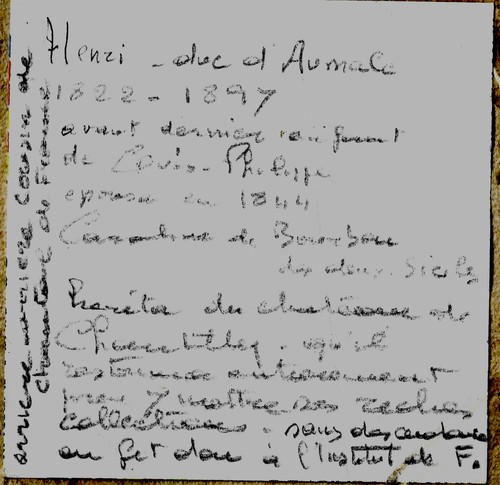 Henri - duc d'Aumale
1822 - 1897
avant dernier enfant
de Louis-Philippe
epousa en 1844
Caroline de Bourbon
des deux. Siciles
hérita du chateau de
Chantilly. qu'il
restaura entierement
pour y mettre ses riches
collections. sans descendance
en fit don à l'Institut de F.
arriere arriere cousin de